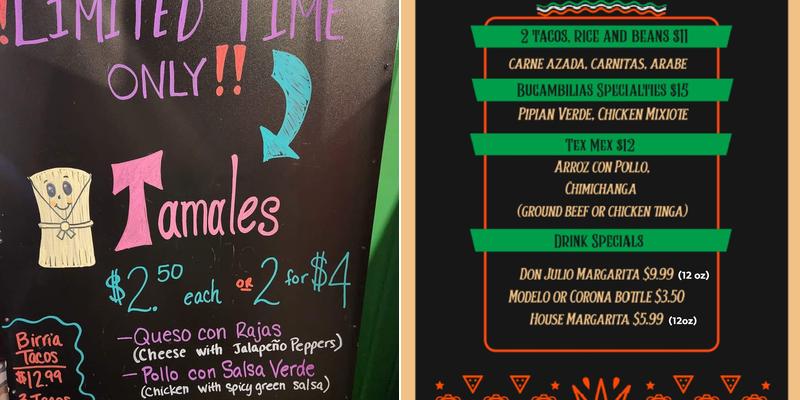 !LIMITED TIME
ONLY!!
Tamales
$2.50 each OR 2 for $4
Birria
Tacos
$12.99
3 Tacos
-Queso con Rajas
(Cheese with Jalapeño Peppers)
-Pollo con Salsa Verde
(Chicken with spicy green salsa)
2 TACOS, RICE AND BEANS $11
CARNE AZADA, CARNITAS, ARABE
BUGAMBILIAS SPECIALTIES $15
PIPIAN VERDE, CHICKEN MIXIOTE
TEX MEX $12
ARROZ CON POLLO,
CHIMICHANGA
(GROUND BEEF OR CHICKEN TINGA)
DRINK SPECIALS
DON JULIO MARGARITA $9.99 (12 oz)
MODELO OR CORONA BOTTLE $3.50
HOUSE MARGARITA $5.99 (12oz)